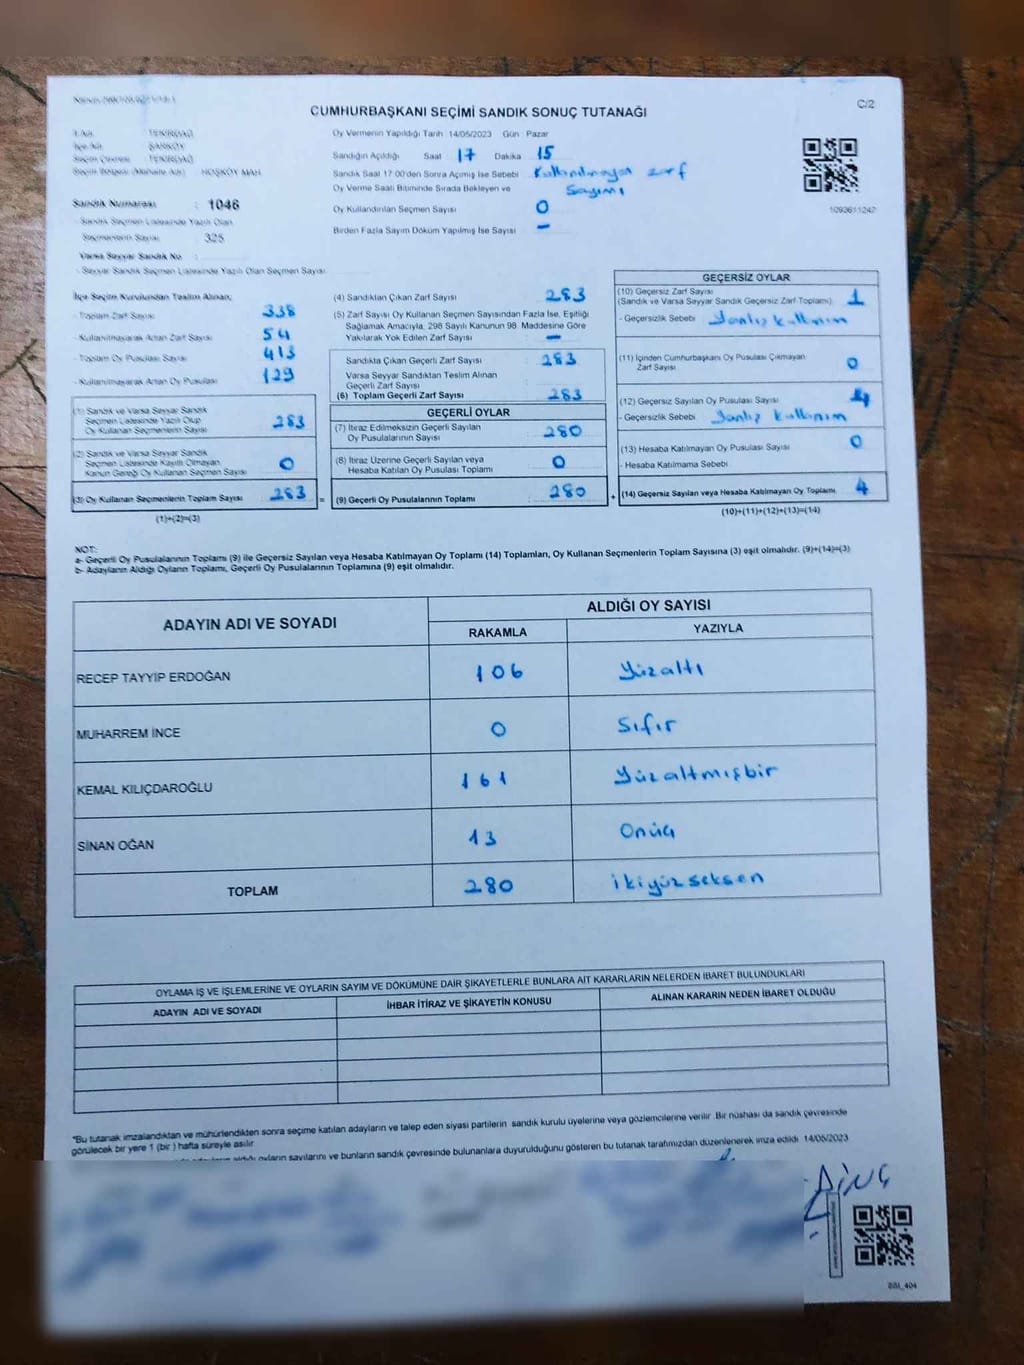 CUMHURBAŞKANI SEÇİMİ SANDIK SONUÇ TUTANAĞI
C/2
Oy Vermenin Yapıldığı Tarih 14/05/2023 Gün Pazar
İl Adı : TEKİRDAĞ
Sandığın Açıldığı Saat 17 Dakika 15
İlçe Adı : ŞARKÖY
Seçim Çevresi : TEKİRDAĞ
Sandık Saat 17:00'den Sonra Açmış İse Sebebi Kullanılmayan zarf
Seçim Bölgesi (Muhalle Adı) : HOŞKÖY MAH.
Oy Verme Saati Bitiminde Sırada Bekleyen ve Sayımı
Oy Kullandırılan Seçmen Sayısı 0
Sandık Numarası : 1046
1092611247
- Sandık Seçmen Listesinde Yazılı Olan
Seçmenlerin Sayısı : 325
Birden Fazla Sayım Döküm Yapılmış İse Sayısı -
Varsa Seyyar Sandık No :
- Seyyar Sandık Seçmen Listesinde Yazılı Olan Seçmen Sayısı
İlçe Seçim Kurulundan Teslim Alınan;
- Toplam Zarf Sayısı 338
- Kullanılmayarak Artan Zarf Sayısı 54
- Toplam Oy Pusulası Sayısı 413
- Kullanılmayarak Artan Oy Pusulası 129
(1) Sandık ve Varsa Seyyar Sandık
Seçmen Listesinde Yazılı Olup
Oy Kullanan Seçmenlerin Sayısı 283
(2) Sandık ve Varsa Seyyar Sandık
Seçmen Listesinde Kayıtlı Olmayan
Kanun Gereği Oy Kullanan Seçmen Sayısı 0
(3) Oy Kullanan Seçmenlerin Toplam Sayısı 283 =
(1)+(2)=(3)
(4) Sandıktan Çıkan Zarf Sayısı 283
(5) Zarf Sayısı Oy Kullanan Seçmen Sayısından Fazla İse, Eşitliği
Sağlamak Amacıyla, 298 Sayılı Kanunun 98. Maddesine Göre
Yakılarak Yok Edilen Zarf Sayısı -
Sandıkta Çıkan Geçerli Zarf Sayısı : 283
Varsa Seyyar Sandıktan Teslim Alınan
Geçerli Zarf Sayısı :
(6) Toplam Geçerli Zarf Sayısı : 283
GEÇERLİ OYLAR
(7) İtiraz Edilmeksizin Geçerli Sayılan
Oy Pusulalarının Sayısı : 280
(8) İtiraz Üzerine Geçerli Sayılan veya
Hesaba Katılan Oy Pusulası Toplamı : 0
(9) Geçerli Oy Pusulalarının Toplamı : 280 +
GEÇERSİZ OYLAR
(10) Geçersiz Zarf Sayısı
(Sandık ve Varsa Seyyar Sandık Geçersiz Zarf Toplamı) 1
- Geçersizlik Sebebi Yanlış kullanım
(11) İçinden Cumhurbaşkanı Oy Pusulası Çıkmayan
Zarf Sayısı 0
(12) Geçersiz Sayılan Oy Pusulası Sayısı
- Geçersizlik Sebebi Yanlış kullanım
(13) Hesaba Katılmayan Oy Pusulası Sayısı 0
- Hesaba Katılmama Sebebi
(14) Geçersiz Sayılan veya Hesaba Katılmayan Oy Toplamı 4
(10)+(11)+(12)+(13)=(14)
NOT:
a- Geçerli Oy Pusulalarının Toplamı (9) ile Geçersiz Sayılan veya Hesaba Katılmayan Oy Toplamı (14) Toplamları, Oy Kullanan Seçmenlerin Toplam Sayısına (3) eşit olmalıdır. (9)+(14)=(3)
b- Adayların Aldığı Oyların Toplamı, Geçerli Oy Pusulalarının Toplamına (9) eşit olmalıdır.
ADAYIN ADI VE SOYADI
ALDIĞI OY SAYISI
RAKAMLA YAZIYLA
RECEP TAYYİP ERDOĞAN 106 Yüzaltı
MUHARREM İNCE 0 Sıfır
KEMAL KILIÇDAROĞLU 161 Yüzaltmışbir
SİNAN OĞAN 13 Onüç
TOPLAM 280 ikiyüzseksen
OYLAMA İŞ VE İŞLEMLERİNE VE OYLARIN SAYIM VE DÖKÜMÜNE DAİR ŞİKAYETLERLE BUNLARA AİT KARARLARIN NELERDEN İBARET BULUNDUKLARI
ADAYIN ADI VE SOYADI İHBAR İTİRAZ VE ŞİKAYETİN KONUSU ALINAN KARARIN NEDEN İBARET OLDUĞU
*Bu tutanak imzalandıktan ve mühürlendikten sonra seçime katılan adayların ve talep eden siyasi partilerin sandık kurulu üyelerine veya gözlemcilerine verilir. Bir nüshası da sandık çevresinde
görülecek bir yere 1 (bir) hafta süreyle asılır.
aldığı oyların sayılarını ve bunların sandık çevresinde bulunanlara duyurulduğunu gösteren bu tutanak tarafımızdan düzenlenerek imza edildi. 14/05/2023
DİNÇ